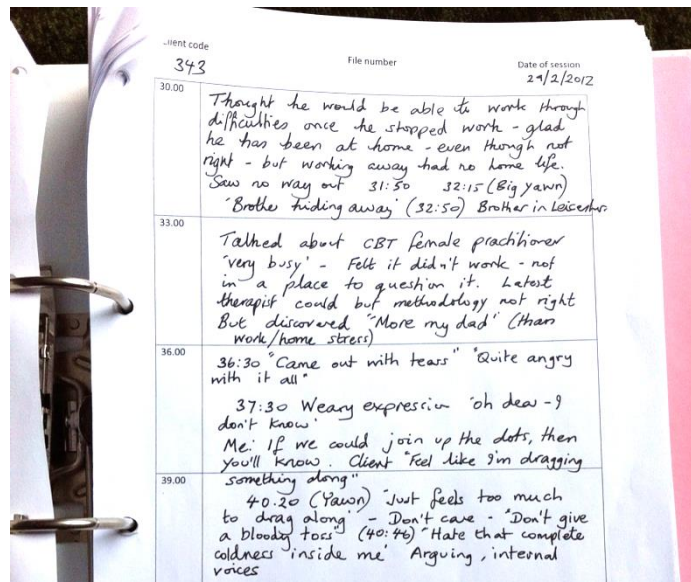 lient code
File number
Date of session
343
29/2/2012
30.00
Thought he would be able to work through
difficulties once he stopped work - glad
he has been at home - even though not
right - but working away had no home life.
Saw no way out 31:50 32:15 (Big yawn)
'Brother hiding away' (32:50) Brother in Leicester
33.00
Talked about CBT female practitioner
'very busy' - Felt it didn't work - not
in a place to question it. Latest
therapist could but methodology not right
But discovered "More my dad" (than
work/home stress)
36.00
36:30 "Came out with tears" "Quite angry
with it all"
37:30 Weary expression 'oh dear - I
don't know'
Me: If we could join up the dots, then
you'll know. Client "Feel like I'm dragging
39.00
something along"
40.20 (Yawn) 'Just feels too much
to drag along' - Don't care - "Don't give
a bloody toss" (40:46) "Hate that complete
coldness inside me' Arguing, internal
voices